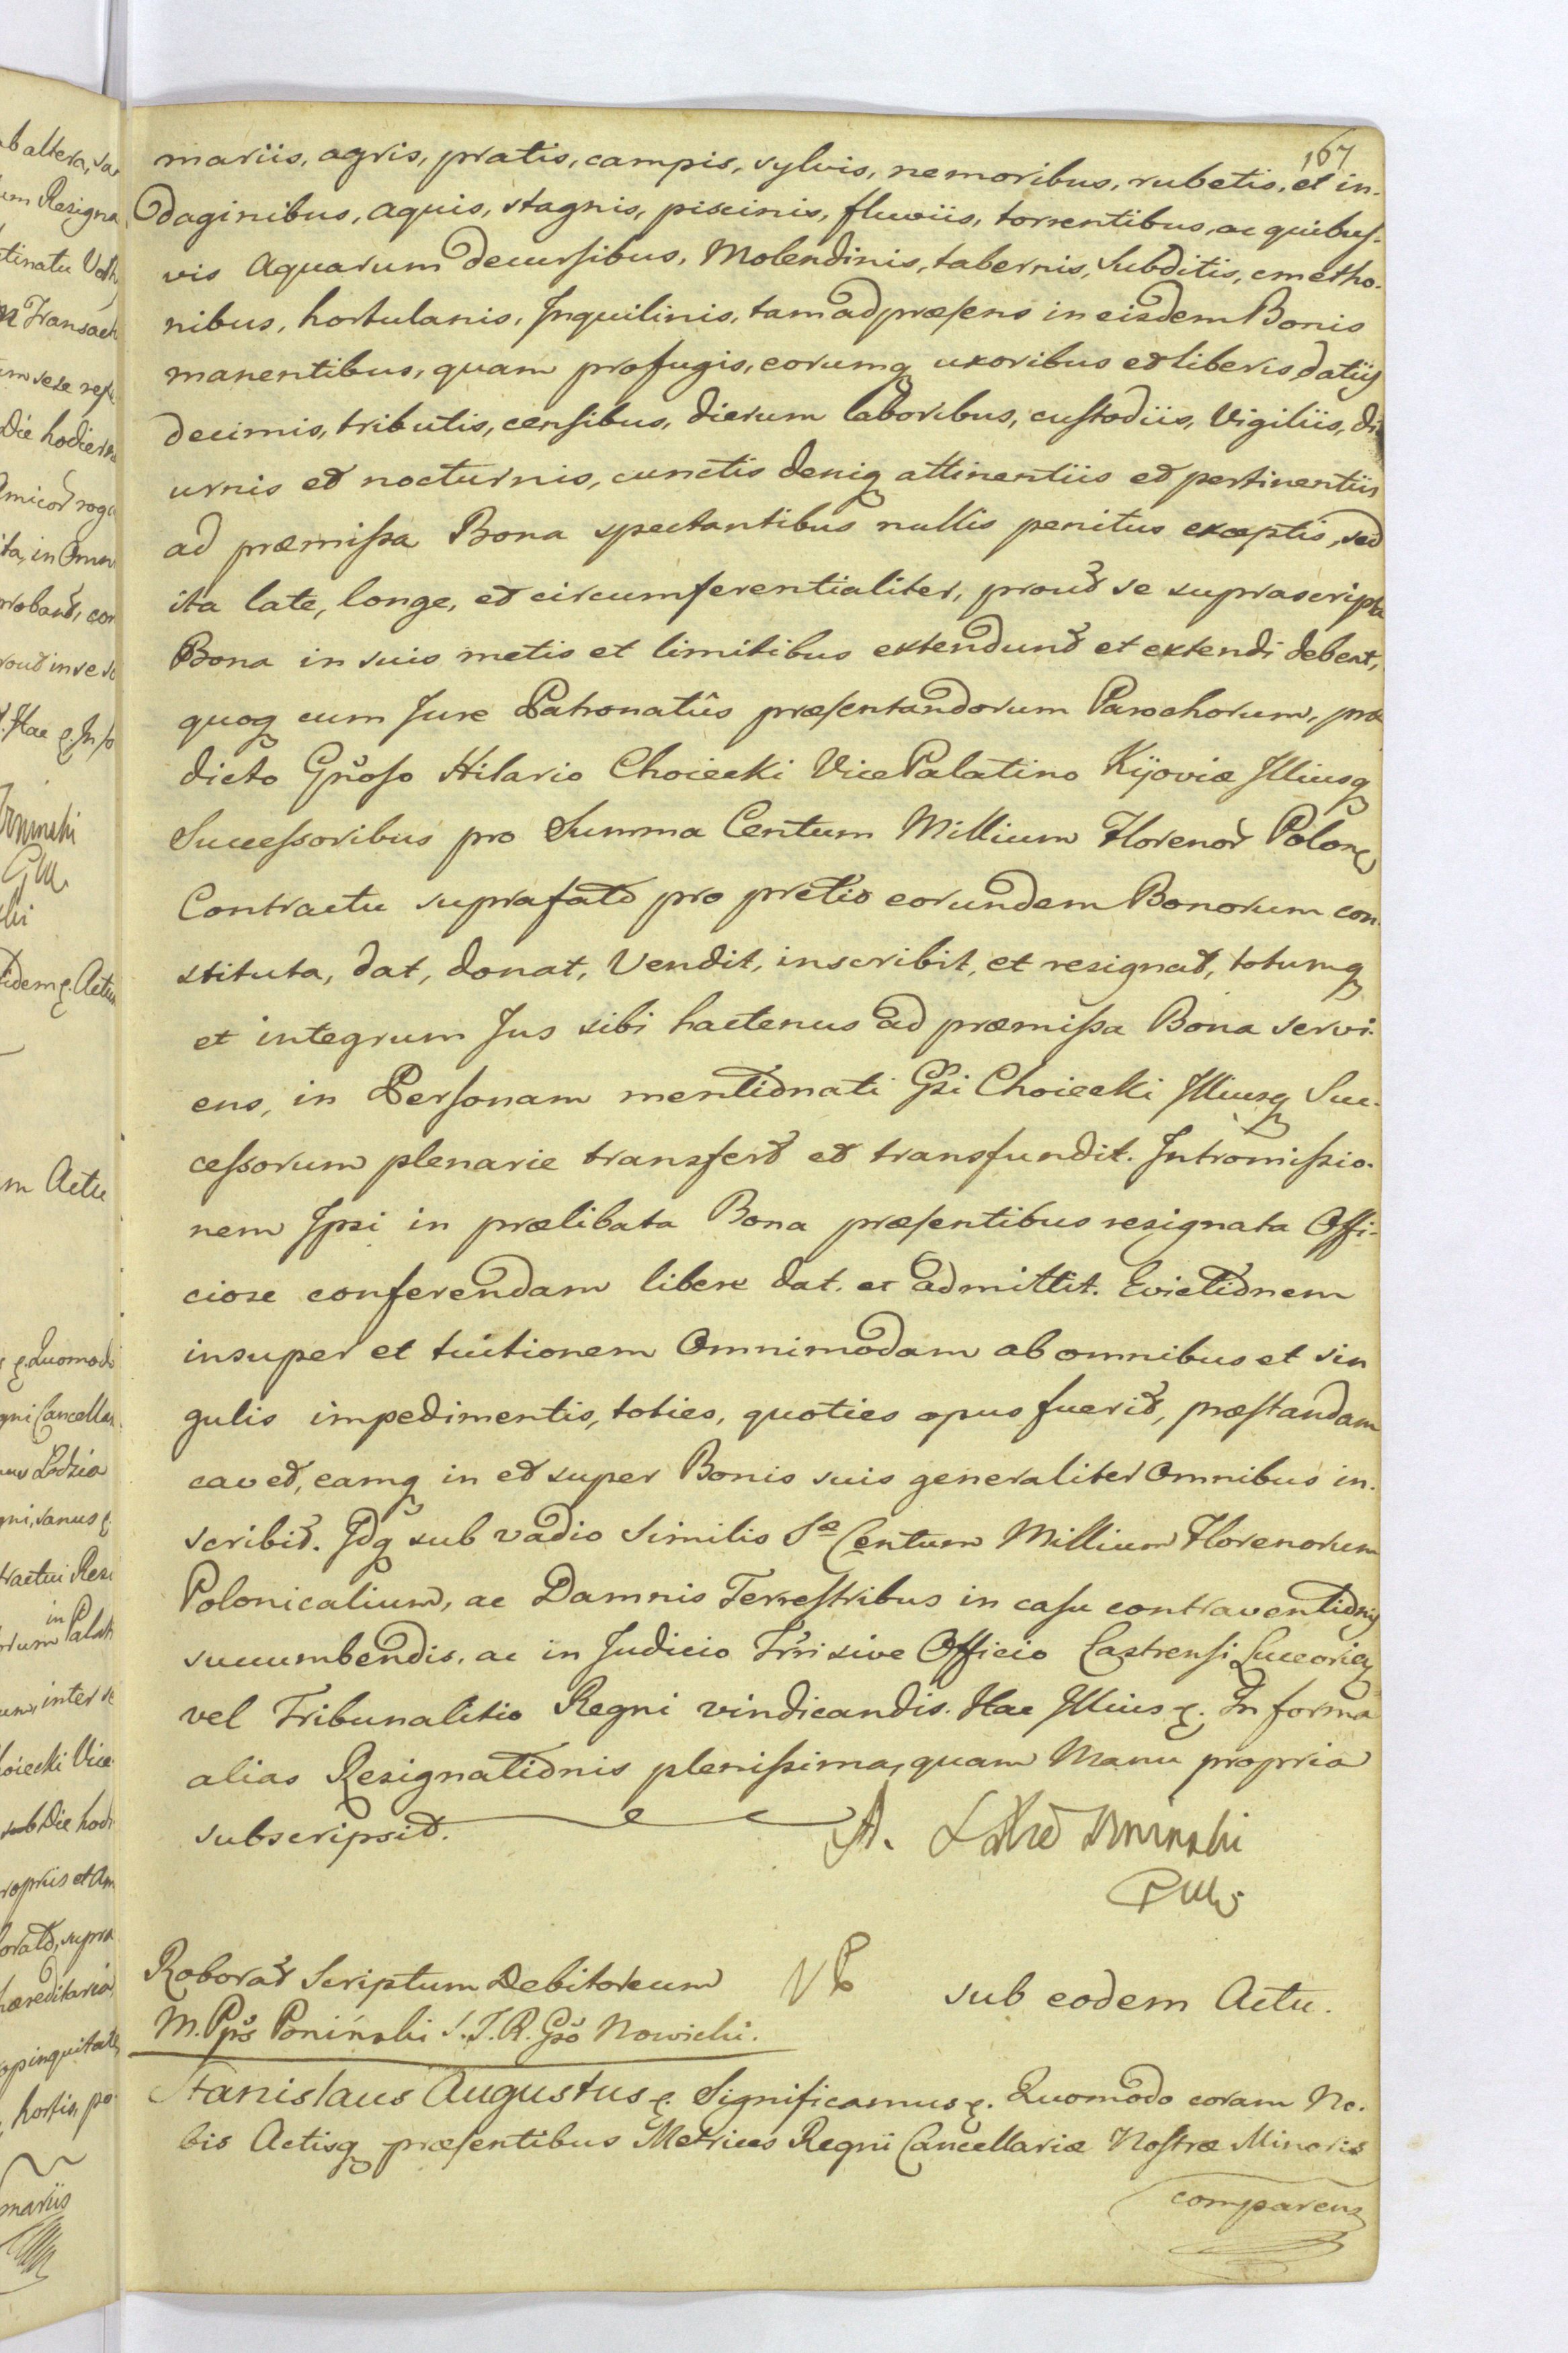 167
mariis, agris, pratis, campis, sylvis, nemoribus, rubetis, et in-
daginibus, aquis, stagnis, piscinis, fluviis, torrentibus, ac quibus-
vis Aquarum decursibus, Molendinis, tabernis, Subditis, cmetho-
nibus, hortulanis, Inquilinis, tam ad præsens in eisdem Bonis
manentibus, quam profugis, eorumq uxoribus et liberis, datijs
decimis, tributis, censibus, dierum laboribus, custodiis, Vigiliis, di
urnis et nocturnis, cunctis deniq attinentiis et pertinentiis
ad præmissa Bona spectantibus nullis penitus exceptis, sed
ita late, longe, et circumferentialiter, prout se suprascripta
Bona in suis metis et limitibus extendunt et extendi debent,
quoq cum Jure Patronatûs præsentandorum Parochorum, præ
dicto Gnoso Hilario Choiecki Vice Palatino Kijoviæ Illiusq
Successoribus pro Summa Centum Millium Floreno Polon
Contractu suprafato pro pretio eorundem Bonorum con-
stituta, dat, donat, Vendit, inscribit, et resignat, totumq
et integrum Jus sibi hactenus ad præmissa Bona servi-
ens, in Personam mentionati Gsi Choiecki Illiusq Suc-
cessorum plenarie transfert et transfundit. Intromissio-
nem Ipsi in prælibata Bona præsentibus resignata Offi-
ciose conferendam libere dat. et admittit. Evictionem
insuper et tuitionem Omnimodam ab omnibus et sin
gulis impedimentis, toties, quoties opus fuerit, præstandam
cavet, eamq in et super Bonis suis generaliter Omnibus in-
scribit. Idq sub vadio Similis Sæ Centum Millium Florenorum
Polonicalium, ac Damnis Terrestribus in casu contraventionis
succumbendis, ac in Judicio Trri sive Officio Castrensi Luceorien
vel Tribunalitio Regni vindicandis. Hac Illius e. In forma
alias Resignationis plenissima, quam Manu propria
subscripsit.
A. Poninski
Roborat Scriptum Debitorium
sub eodem Actu.
M. Pps Poninski S. T. R. Gso Nowicki.
Stanislaus Augustus e. Significamus e. Quomodo coram No-
bis Actisq præsentibus Metrices Regni Cancellariæ Nostræ Minoris
comparens